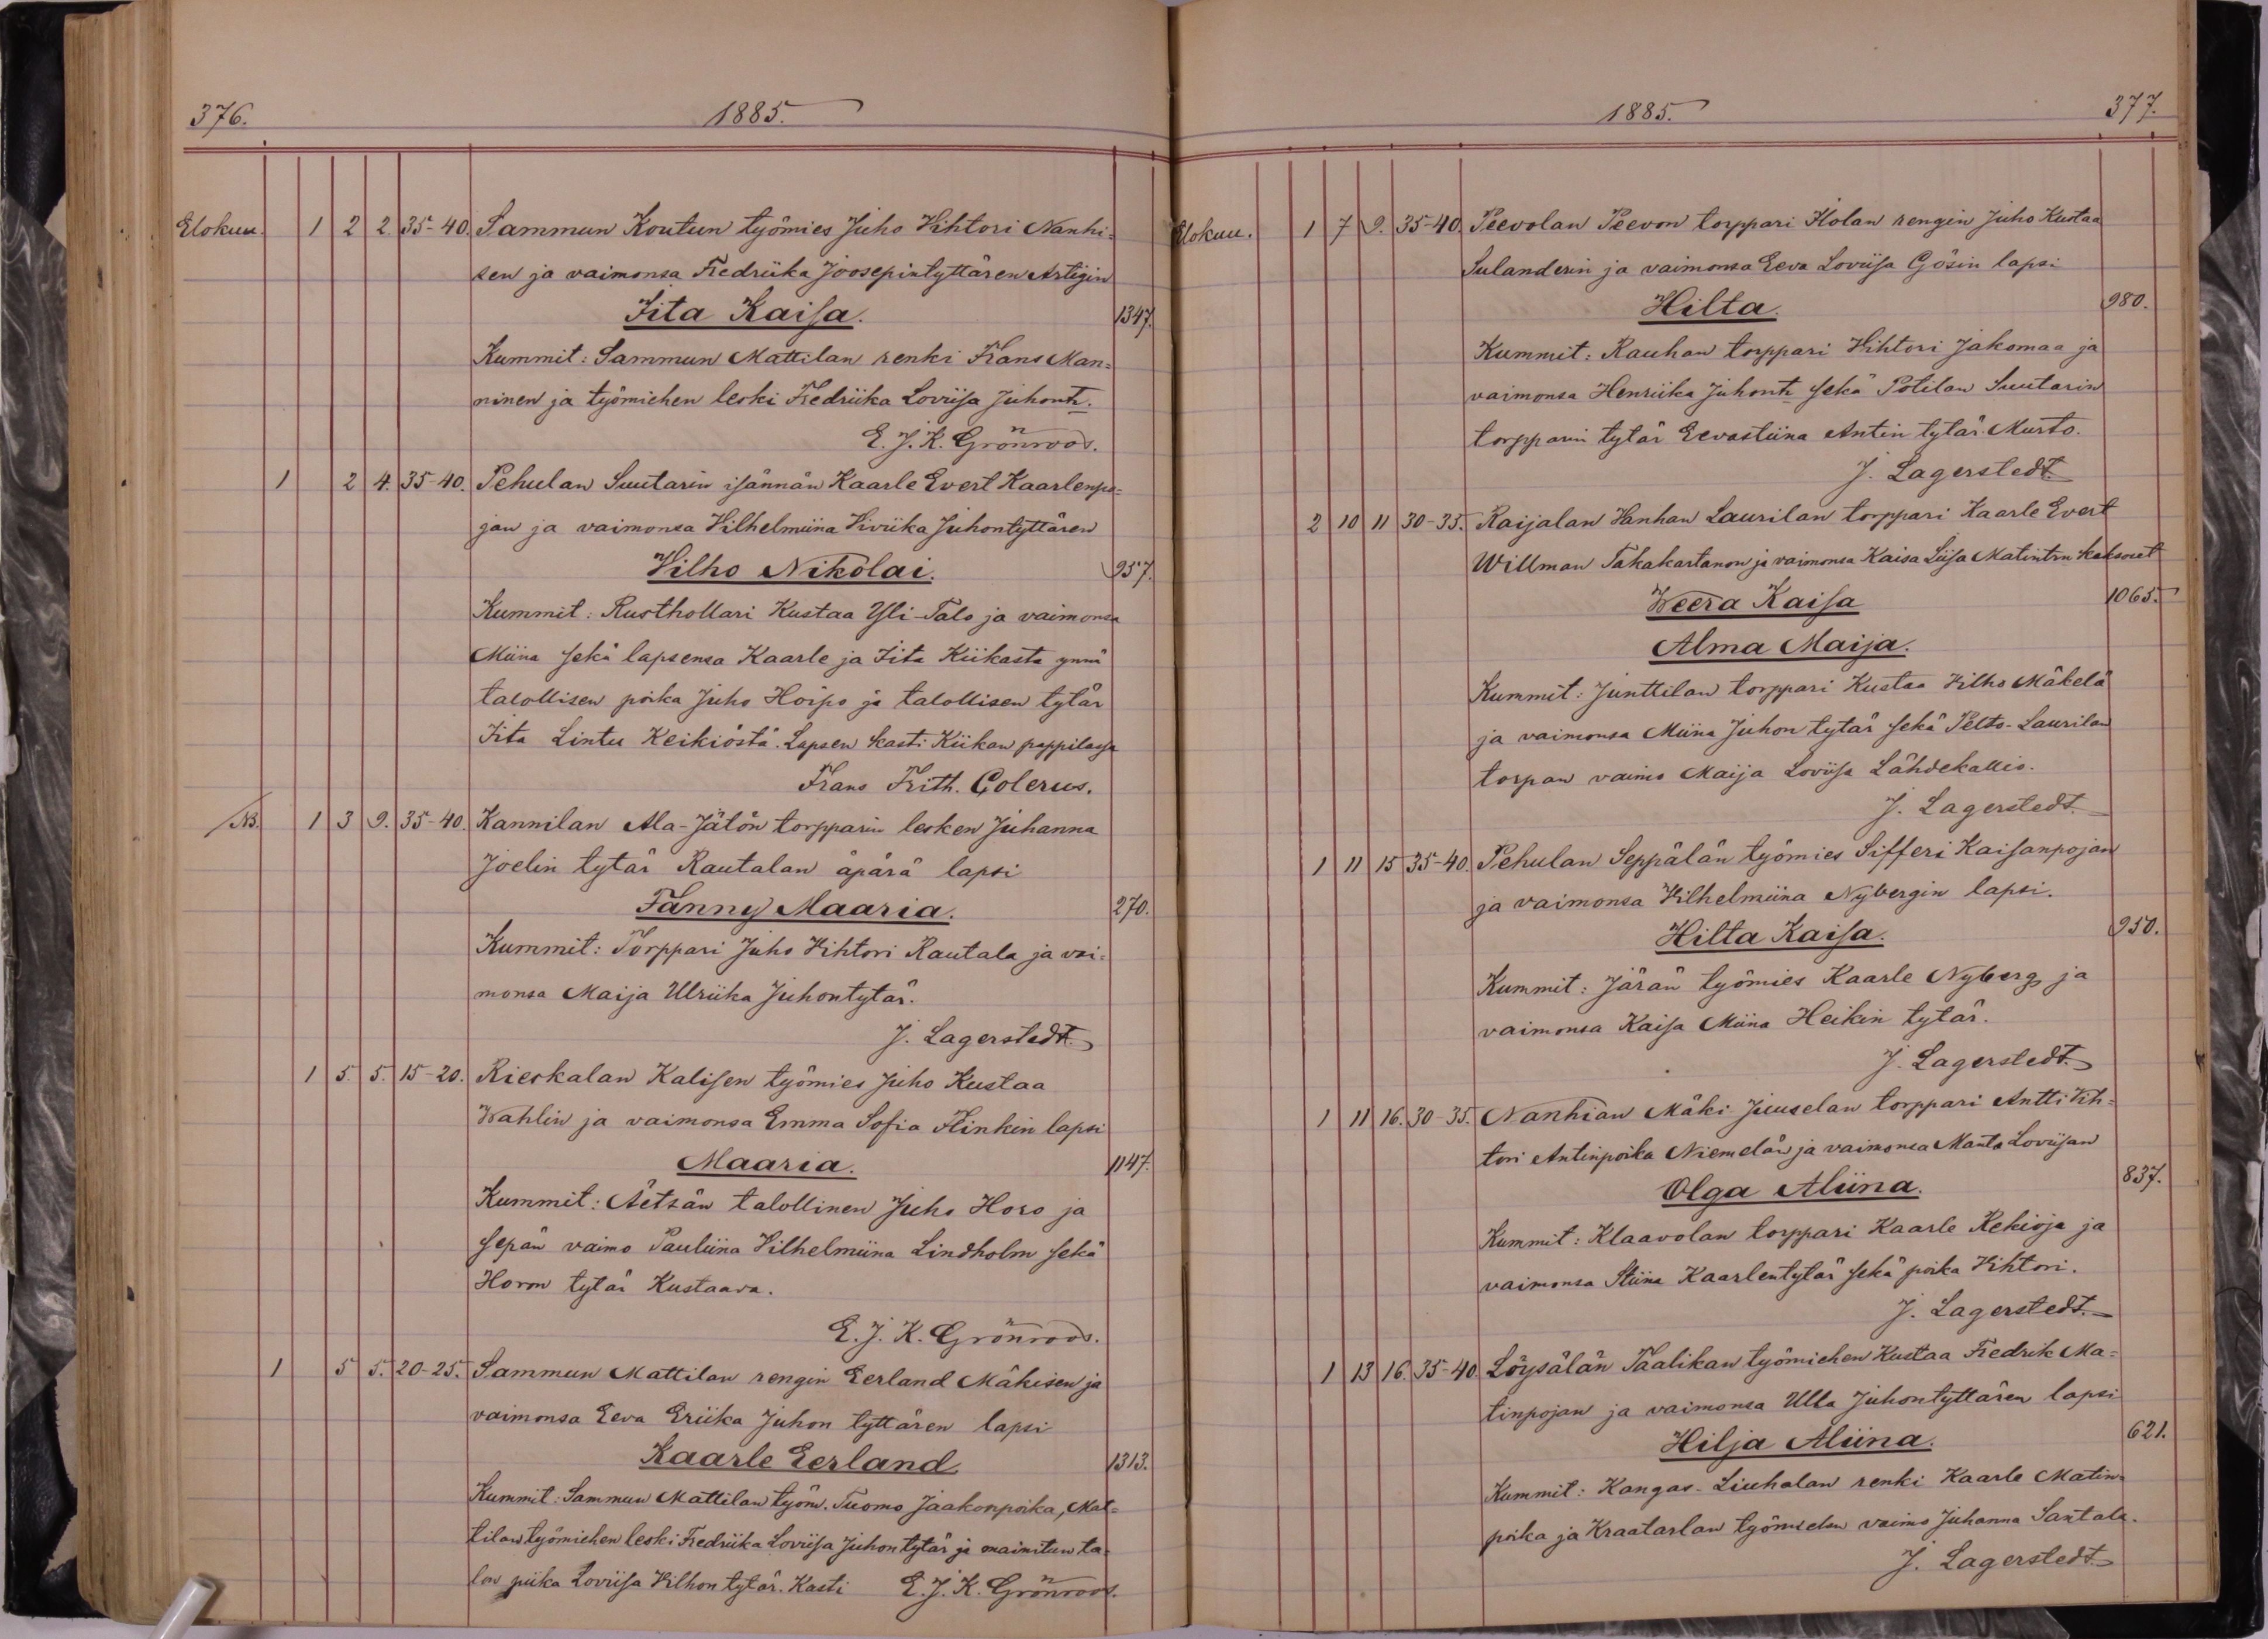 376.
1885.
Elokuu. 1 2 2. 35-40. Sammun Koutun työmies Juho Vihtori Nanhi-
sen ja vaimonsa Fredriika Joosepintyttären Artigin
Iita Kaisa. 1347.
Kummit: Sammun Mattilan renki Frans Man-
ninen ja työmiehen leski Fredriika Loviisa Juhontr.
E. J. K. Grönroos.
1 2 4. 35-40. Pehulan Suutarin isännän Kaarle Evert Kaarlenpo-
jan ja vaimonsa Vilhelmiina Viviika Juhontyttären
Vilho Nikolai. 957.
Kummit: Rusthollari Kustaa Yli-Talo ja vaimonsa
Miina sekä lapsensa Kaarle ja Iita Kiikasta ynnä
talollisen poika Juho Hoipo ja talollisen tytär
Iita Lintu Keikiöstä. Lapsen kasti Kiikan pappilassa
Frans Frith. Colerus.
NB. 1 3 9. 35-40. Kannilan Ala-Jätön torpparin lesken Juhanna
Joelin tytär Rautalan äpärä lapsi
Fanny Maaria. 270.
Kummit: Torppari Juho Vihtori Rautala ja vai-
monsa Maija Ulriika Juhontytär.
J. Lagerstedt.
1 5. 5. 15-20. Rieskalan Kalisen työmies Juho Kustaa
Wahlin ja vaimonsa Emma Sofia Flinkin lapsi
Maaria. 1147.
Kummit: Äetsän talollinen Juho Horo ja
sepän vaimo Pauliina Vilhelmiina Lindholm sekä
Horon tytär Kustaava.
E. J. K. Grönroos.
1 5 5. 20-25. Sammun Mattilan rengin Eerland Mäkisen ja
vaimonsa Eeva Eriika Juhon tyttären lapsi
Kaarle Eerland 1313.
Kummit: Sammun Mattilan työm. Tuomo Jaakonpoika, Mat-
tilan työmiehen leski Fredriika Loviisa Juhontytär ja mainitun ta-
lon piika Loviisa Vilhon tytär. Kasti E. J. K. Grönroos.
1885.
377.
Elokuu. 1 7 9. 35-40. Peevolan Peevon torppari Kolan rengin Juho Kustaa
Sulanderin ja vaimonsa Eeva Loviisa Gösin lapsi
Hilta. 980.
Kummit: Rauhan torppari Vihtori Jakomaa ja
vaimonsa Henriika Juhontr sekä Potilan Suutarin
torpparin tytär Eevastiina Antin tytär Murto.
J. Lagerstedt.
2 10 11 30-35. Raijalan Vanhan Laurilan torppari Kaarle Evert
Willman Takakartanon ja vaimonsa Kaisa Liisa Matintrn kaksoset
Weera Kaisa 1065.
Alma Maija.
Kummit: Junttilan torppari Kustaa Vilho Mäkelä
ja vaimonsa Miina Juhon tytär sekä Pelto-Laurilan
torpan vaimo Maija Loviisa Lähdekallio.
J. Lagerstedt.
1 11 15 35-40. Pehulan Seppälän työmies Sifferi Kaisanpojan
ja vaimonsa Vilhelmiina Nybergin lapsi.
Hilta Kaisa. 950.
Kummit: Järän työmies Kaarle Nyberg ja
vaimonsa Kaisa Miina Heikin tytär.
J. Lagerstedt.
1 11 16. 30-35. Nanhian Mäki Juuselan torppari Antti Vih-
tori Antinpoika Niemelän ja vaimonsa Manta Loviisan
Olga Aliina. 837.
Kummit: Klaavolan torppari Kaarle Rekioja ja
vaimonsa Stiina Kaarlentytär sekä poika Vihtori.
J. Lagerstedt.
1 13 16. 35-40. Löysälän Taalikan työmiehen Kustaa Fredrik Ma-
tinpojan ja vaimonsa Ulla Juhontyttären lapsi
Hilja Aliina. 621.
Kummit: Kangas-Liuhalan renki Kaarle Matin-
poika ja Kraatarlan työmiehen vaimo Juhanna Santala.
J. Lagerstedt.